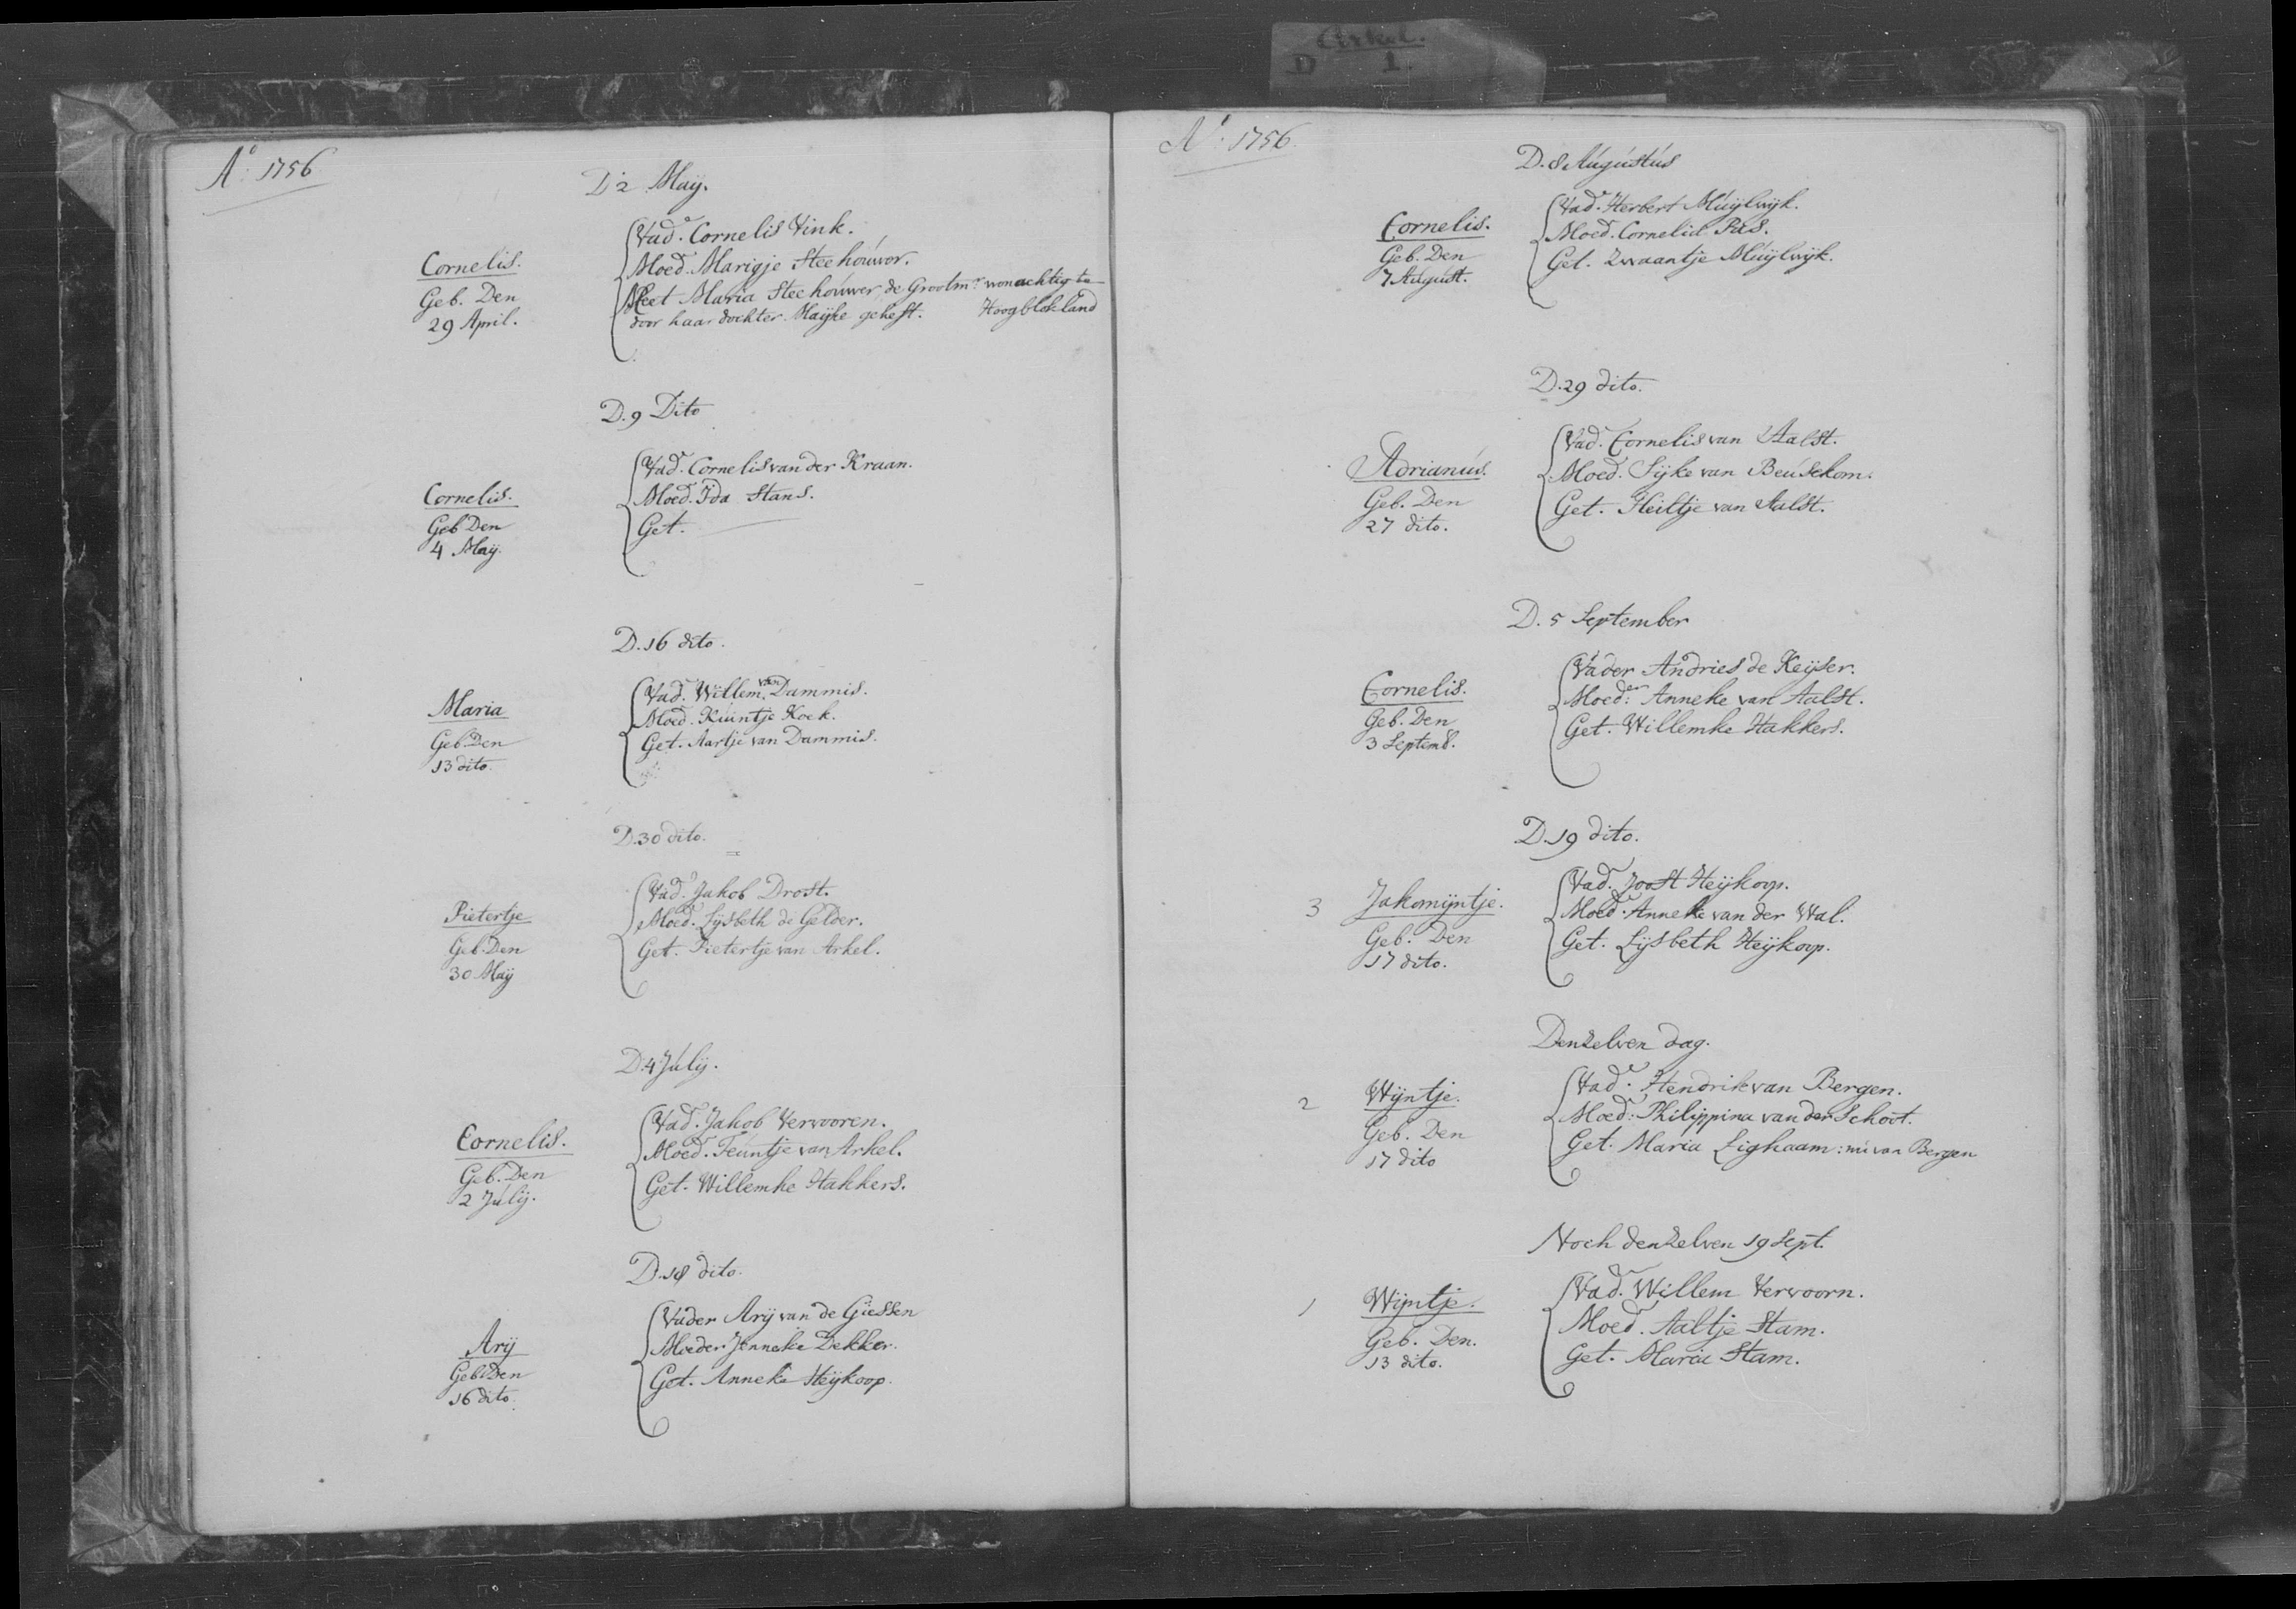 Arkel.
D 1.
Ao. 1756
D. 2 Maÿ.
Cornelis.
Geb. Den
29 April.
Vadr. Cornelis Vink.
Moedr. Marigje Steehouwer.
Meet Maria Steehouwer de Grootmr. wonachtig te
door haar dochter Maijke geheft. Hoogblokland
D. 9 Dito
Cornelis.
Geb Den
4 Maÿ.
Vadr. Cornelis van der Kraan.
Moedr. Ida Stans.
Get.
D. 16 dito.
Maria
Geb. Den
13 dito.
Vadr. Willem van Dammis.
Moedr. Kúintje Kock.
Get. Aartje van Dammis.
D. 30 dito.
Pietertje
Geb. Den
30 Maÿ
Vadr. Jakob Drost.
Moedr. Lijsbeth de Gelder.
Get. Pietertje van Arkel.
D. 4 Júlij.
Cornelis.
Geb. Den
2 Júlij.
Vadr. Jakob Vervooren.
Moedr. Teúntje van Arkel.
Get. Willemke Hakkers.
D. 18 dito.
Arÿ
Geb. Den
16 dito.
Vader Arÿ van de Giessen
Moeder Jenneke Dekker.
Get. Anneke Heijkoop.
Ao. 1756.
D. 8 Aúgústús
Cornelis.
Geb. Den
7 Aúgúst.
Vadr. Herbert Múijlwijk.
Moedr. Cornelia Pas.
Get. Zwaantje Múijlwijk.
D. 29 dito.
Adrianús.
Geb. Den
27 dito.
Vadr. Cornelis van Aalst.
Moedr. Sijke van Beúsekom.
Get. Heiltje van Aalst.
D. 5 September
Cornelis.
Geb. Den
3 Septemb.
Vader Andries de Keijser.
Moeder: Anneke van Aalst.
Get. Willemke Hakkers.
D. 19 dito.
3 Jakomijntje.
Geb. Den
17 dito.
Vadr. Joost Heijkoop.
Moedr. Anneke van der Wal.
Get. Lijsbeth Heijkoop.
Denzelven dag.
2 Wijntje.
Geb. Den
17 dito
Vadr. Hendrik van Bergen.
Moedr: Philippina van der Schoot.
Get. Maria Lighaam: van Bergen
Noch denzelven 19 Sept.
1 Wijntje.
Geb. Den.
13 dito.
Vadr. Willem Vervoorn.
Moedr. Aaltje Stam.
Get. Maria Stam.